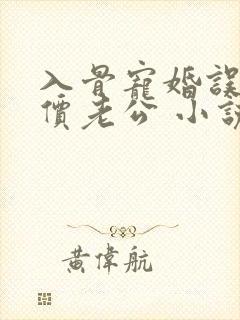 入骨寵婚誤
價老公 小說
黃偉航